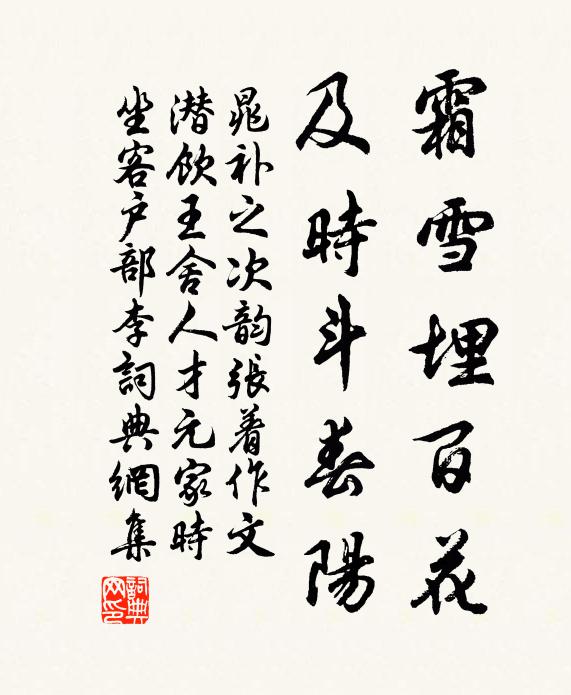 霜雪埋百花
及時斗春陽
晁补之次韵張著作文
潜飲王舍人才元家時
坐客户部李詞典網集
詞典网印